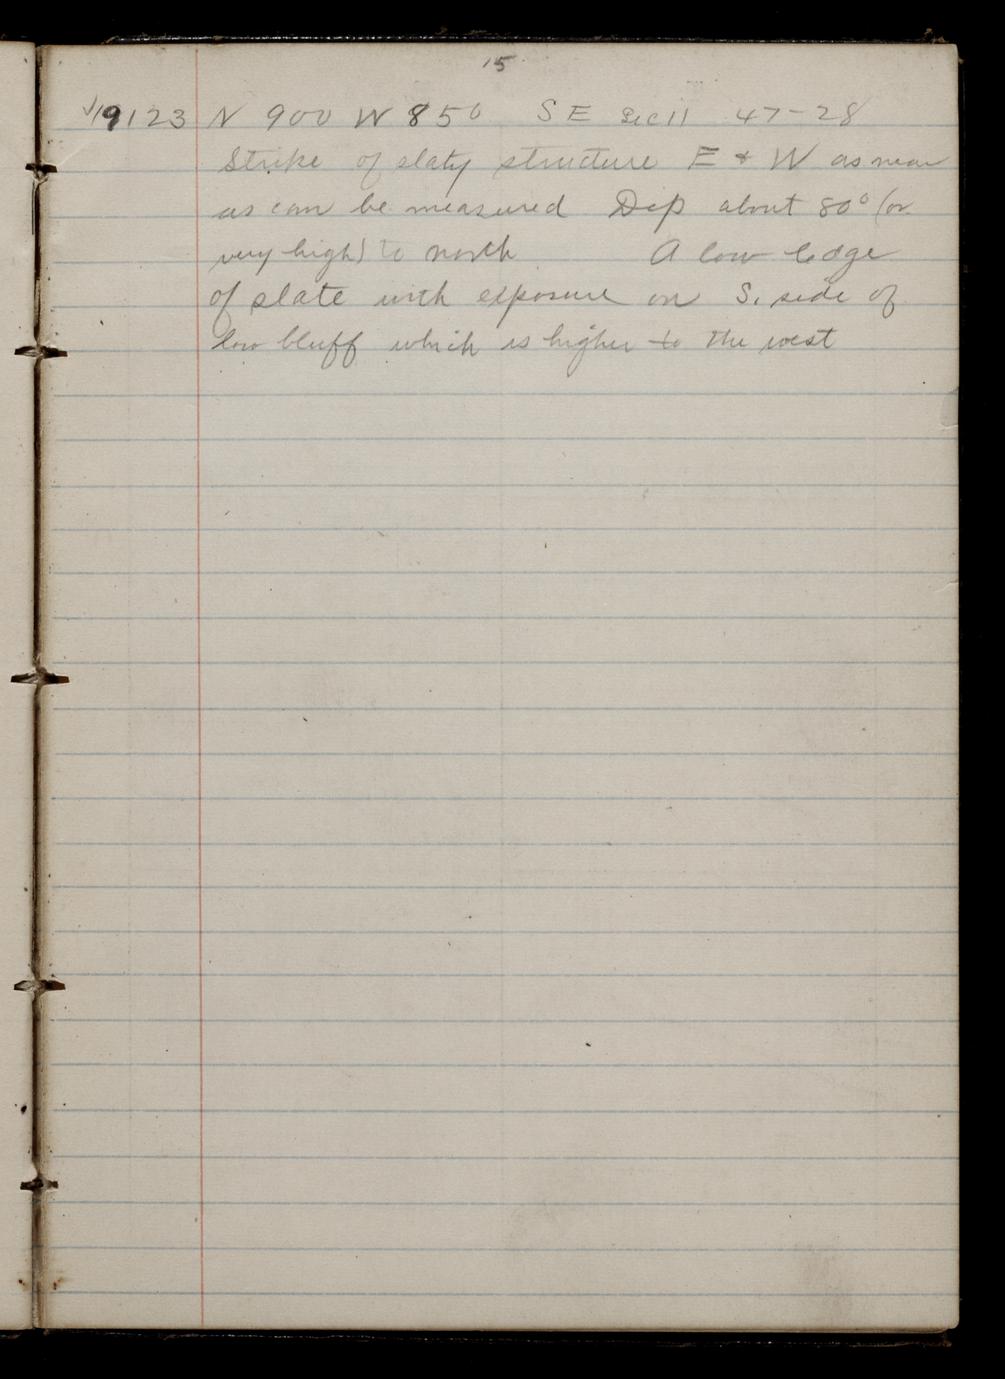 15
√19123 N 900 W 850 SE Sec 11 47-28
Strike of slaty structure E & W as near
as can be measured Dip about 80° (or
very high) to north A low ledge
of slate with exposure on S. side of
low bluff which is higher to the west